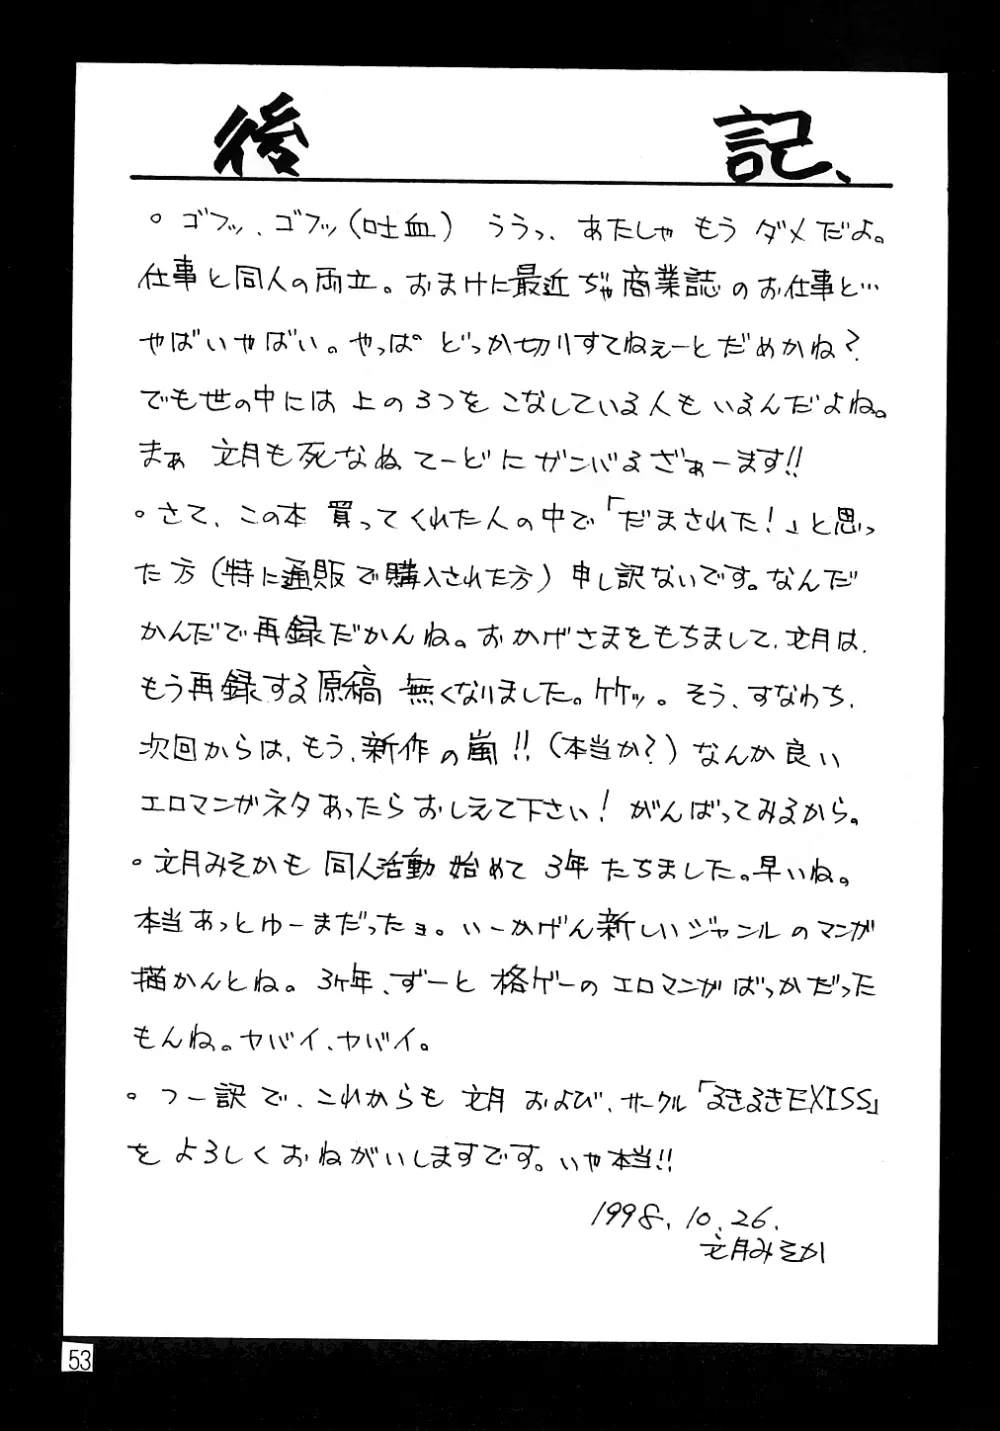 後記、
。ゴフッ、ゴフッ(吐血) ううっ、あたしゃもうダメだよ。
仕事と同人の両立。おまけに最近ぢゃ商業誌のお仕事と…
やばいやばい。やっぱどっか切りすてねぇーとだめかね?
でも世の中には上の3つをこなしている人もいるんだよね。
まぁ 文月も死なぬてーどにガンバるざぁーます!!
。さて、この本買ってくれた人の中で「だまされた!」と思っ
た方(特に通販で購入された方)申し訳ないです。なんだ
かんだで再録だかんね。おかげさまをもちまして、文月は、
もう再録する原稿 無くなりました。ケケッ。そう、すなわち、
次回からは、もう、新作の嵐!!(本当か?)なんか良い
エロマンガネタあったらおしえて下さい!がんばってみるから。
。文月みそかも同人活動始めて3年たちました。早いね。
本当あっとゆーまだったョ。いーかげん新しいジャンルのマンガ
描かんとね。3ヶ年、ずーと格ゲーのエロマンガばっかだった
もんね。ヤバイ、ヤバイ。
。つー訳で、これからも文月および、サークル「るきるきEXISS」
をよろしくおねがいしますです。いや本当!!
1998.10.26.
文月みそか
53